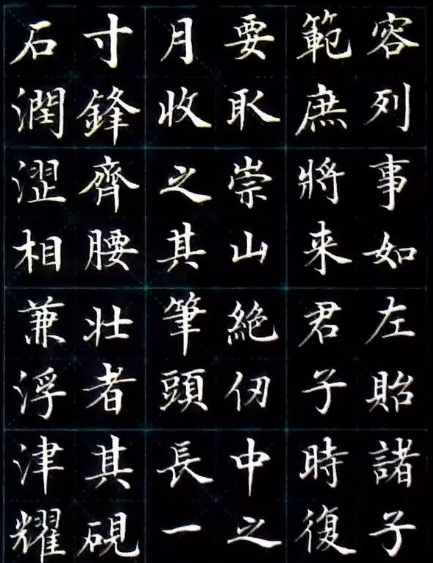 容列事如左貽諸子
範庶將来君子時復
要取崇山絶仞中之
月收之其筆頭長一
寸鋒齊腰壮者其硯
石潤澀相兼浮津耀